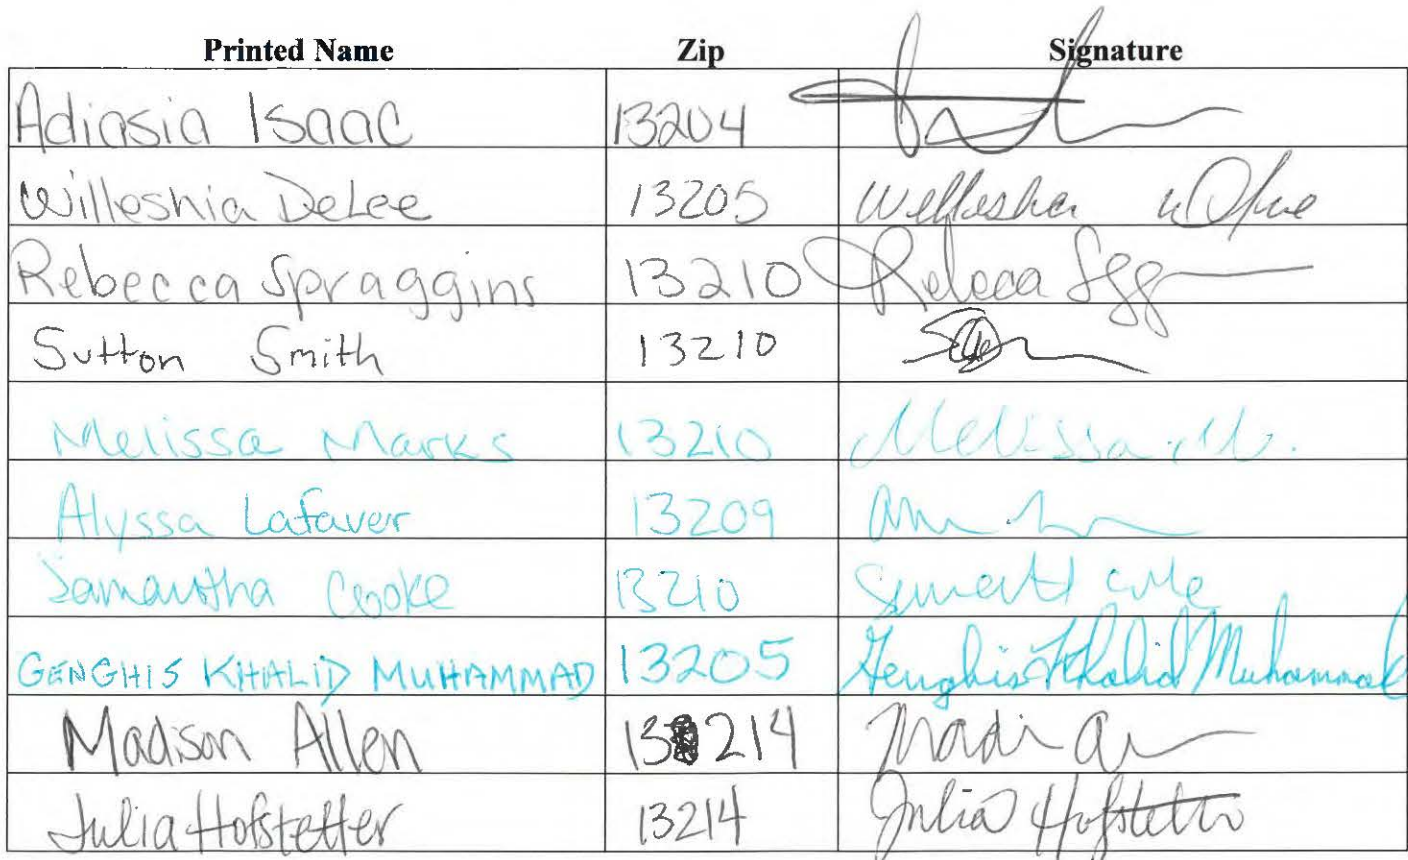 Printed Name Zip Signature
Adiasia Isaac 13204
Willeshia DeLee 13205 Willeshia
Rebecca Spraggins 13210 Rebecca
Sutton Smith 13210
Melissa Marks 13210 Melissa M.
Alyssa Lafaver 13209
Samantha Cooke 13210
GENGHIS KHALID MUHAMMAD 13205 Genghis Khalid Muhammad
Madison Allen 13214
Julia Hofstetter 13214 Julia Hofstetter